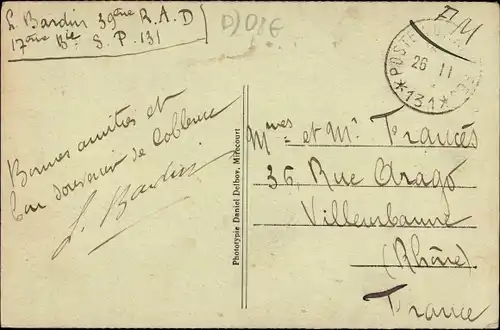 L. Bardin 39ème R.A.D
17ème Bie S.P. 131
D)01E
F M
POSTE
26 11
*131*
Bonnes amitiés et
bon souvenir de Coblence
L. Bardin
Phototypie Daniel Delboy, Mirecourt
et Mr Francés
36, Rue Arago
Villeurbanne
(Rhône)
France